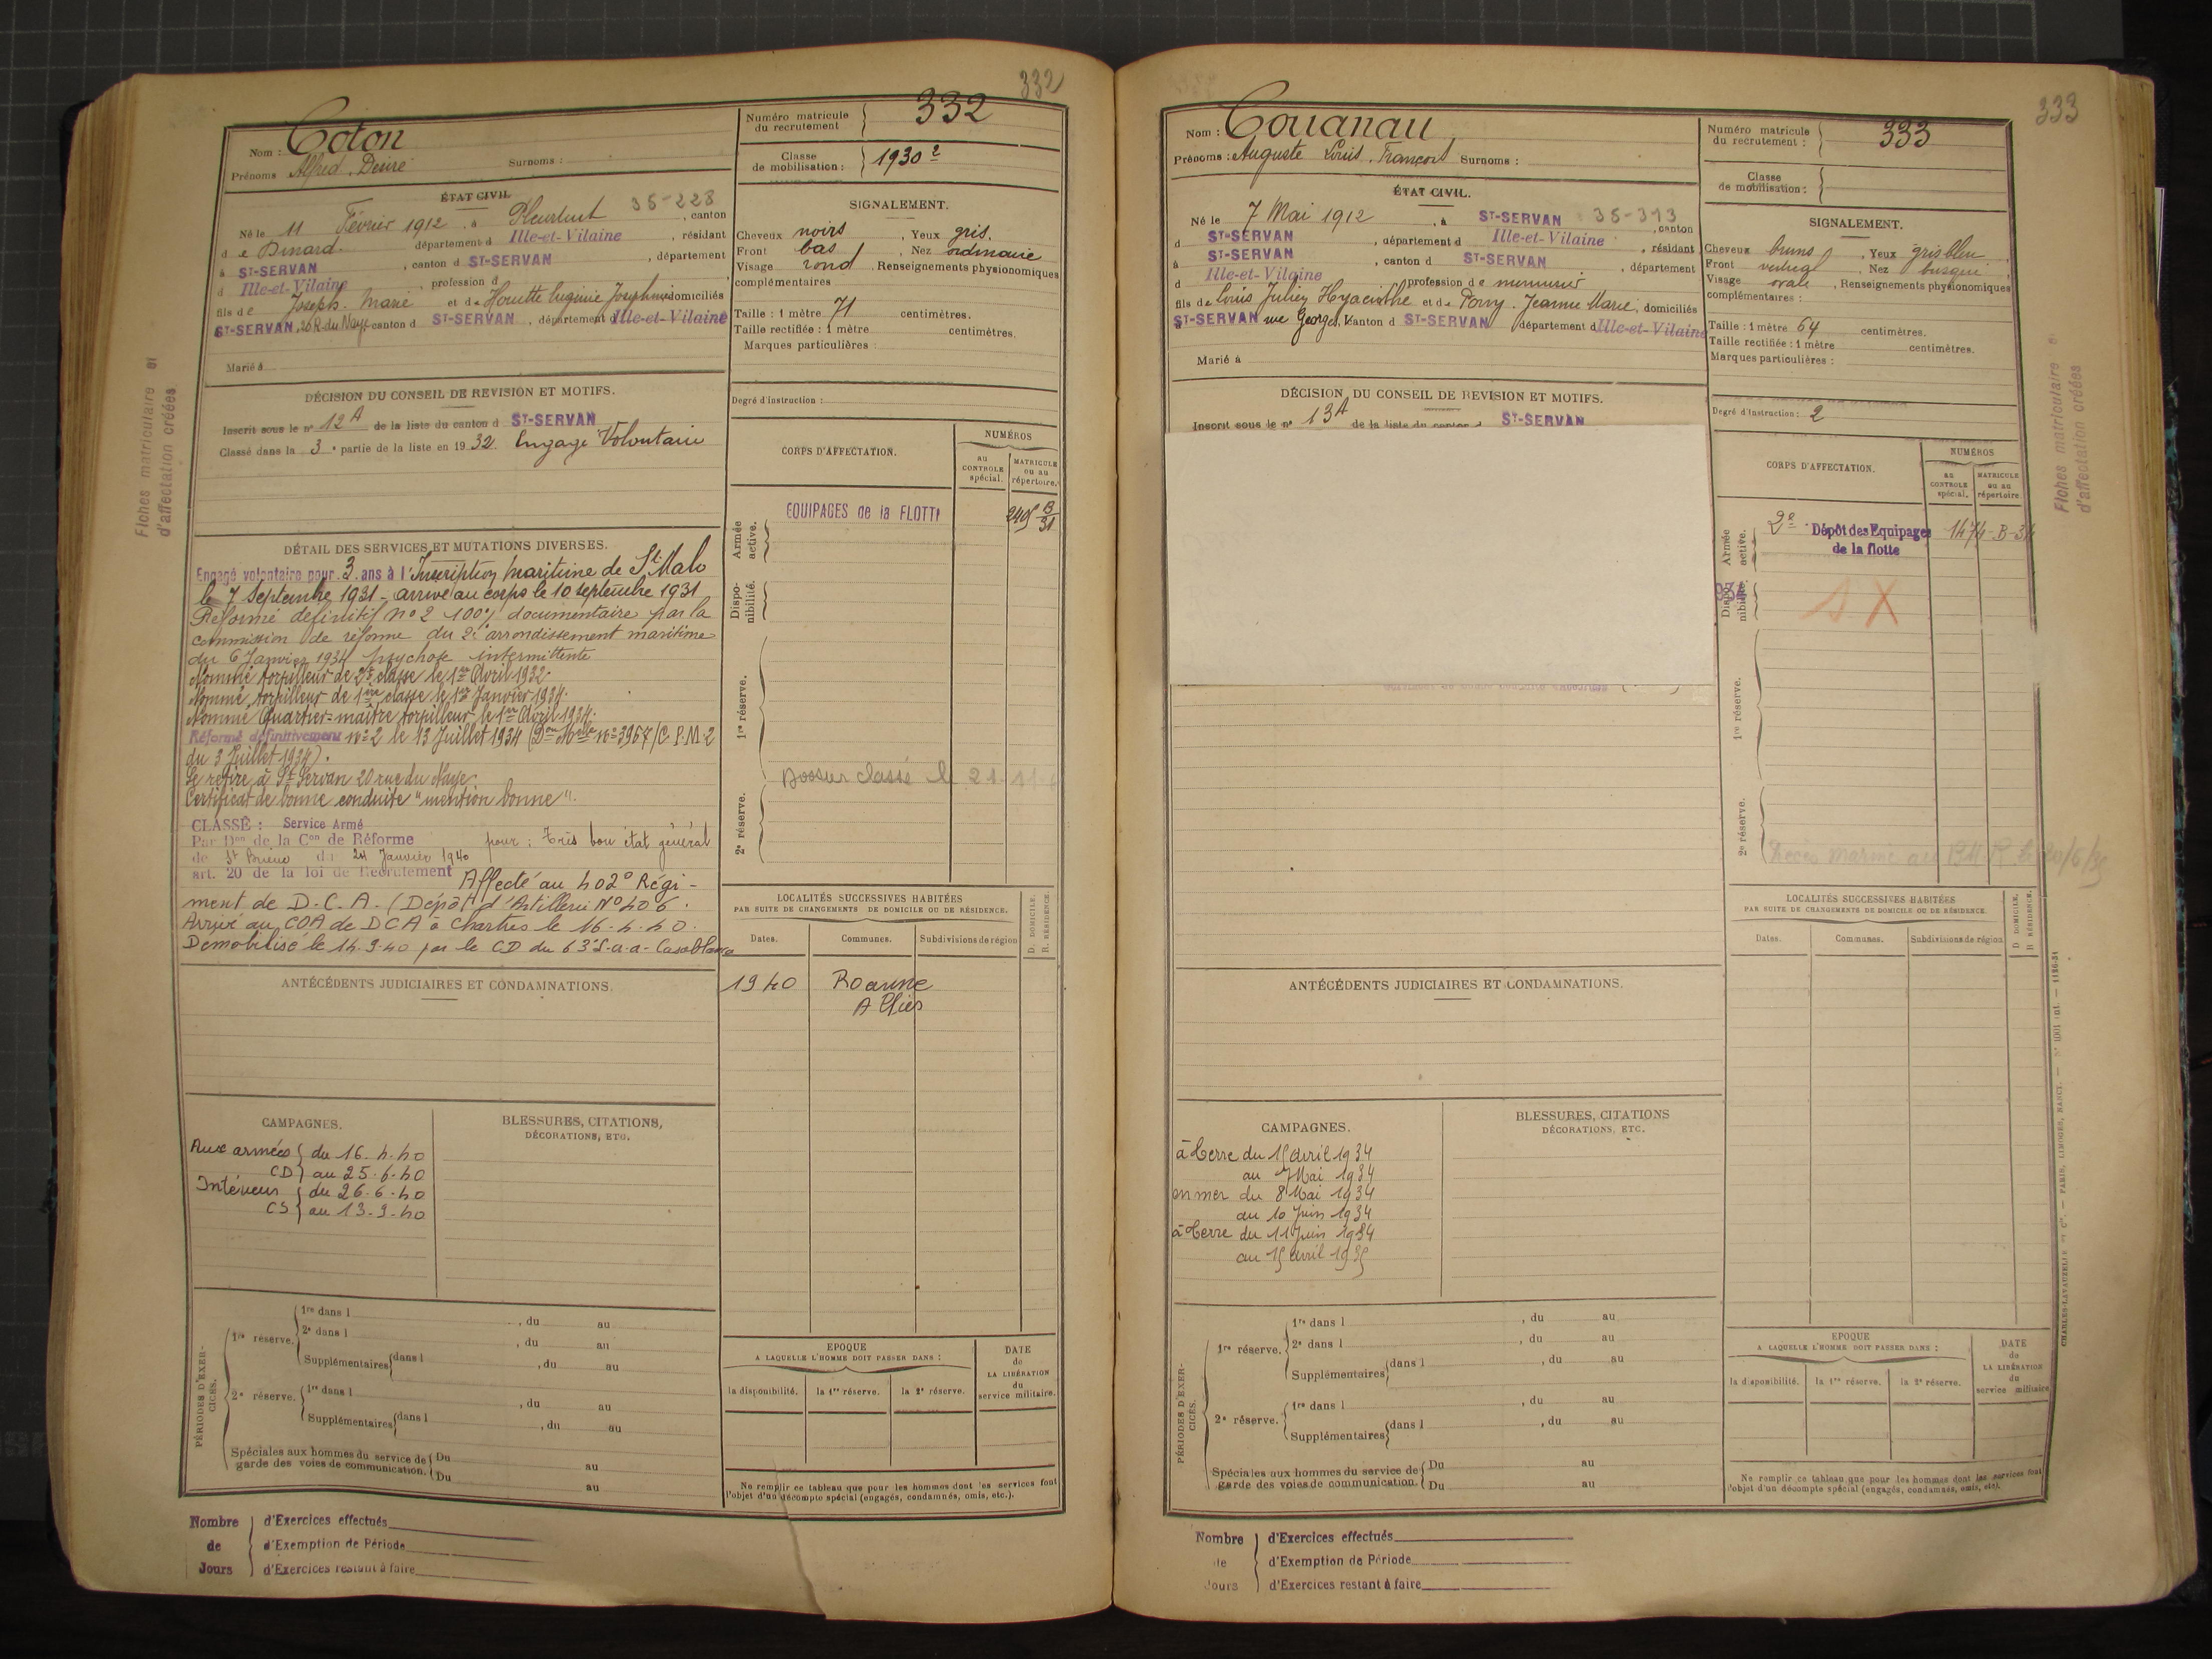 332
Nom : Coton
Prénoms Alfred, Désiré Surnoms :
Numéro matricule du recrutement 332
Classe de mobilisation : 1930 2
ÉTAT CIVIL
35-228
Né le 11 Février 1912, à Pleurtuit, canton
de Dinard département d Ille-et-Vilaine, résidant
à ST-SERVAN, canton d ST-SERVAN, département
d Ille-et-Vilaine, profession d
fils de Joseph Marie et de Houtte Eugénie Joséphine domiciliés
ST-SERVAN, 20 R. du Naye canton d ST-SERVAN, département d Ille-et-Vilaine
Marié à
SIGNALEMENT.
Cheveux noirs, Yeux gris.
Front bas, Nez ordinaire
Visage rond, Renseignements physionomiques
complémentaires
Taille : 1 mètre 71 centimètres.
Taille rectifiée : 1 mètre centimètres.
Marques particulières :
Degré d'instruction :
DÉCISION DU CONSEIL DE REVISION ET MOTIFS.
Inscrit sous le n° 12 A de la liste du canton d ST-SERVAN
Classé dans la 3e partie de la liste en 1932. Engagé Volontaire
DÉTAIL DES SERVICES ET MUTATIONS DIVERSES.
Engagé volontaire pour 3 ans à l'Inscription maritime de St Malo
le 7 Septembre 1931 - arrivé au corps le 10 septembre 1931
Réformé définitif n° 2 100% documentaire par la
commission de réforme du 2e arrondissement maritime
du 6 Janvier 1934 psychose intermittente
Nommé torpilleur de 2e classe le 1er Avril 1932.
Nommé torpilleur de 1ère classe le 1er Janvier 1934.
Nommé Quartier-maître torpilleur le 1er Avril 1934.
Réformé définitivement n° 2 le 13 Juillet 1934 (Don Mlle n° 3967/C.P.M.2
du 3 Juillet 1934).
Se retire à St Servan 20 rue du Naye.
Certificat de bonne conduite "mention bonne".
CLASSÉ : Service Armé
Par Don de la Con de Réforme pour : Très bon état général
de St Brieuc du 24 Janvier 1940
art. 20 de la loi de Recrutement Affecté au 402e Régi-
ment de D.C.A. (Dépôt d'Artillerie N° 406.
Arrivé au COA de DCA à Chartres le 16-4-40.
Démobilisé le 14-9-40 par le CD du 63e
CORPS D'AFFECTATION.
NUMÉROS
au CONTROLE spécial.
MATRICULE ou au répertoire.
Armée active.
EQUIPAGES de la FLOTTE
Dispo-nibilité.
1re réserve.
Dossier classé le
2e réserve.
LOCALITÉS SUCCESSIVES HABITÉES
PAR SUITE DE CHANGEMENTS DE DOMICILE OU DE RÉSIDENCE.
Dates. Communes. Subdivisions de région D. DOMICILE. R. RÉSIDENCE.
1940 Roanne
Allier
ANTÉCÉDENTS JUDICIAIRES ET CONDAMNATIONS.
CAMPAGNES.
Aux armées du 16-4-40
CD au 25-6-40
Intérieur du 26-6-40
CS au 13-9-40
BLESSURES, CITATIONS,
DÉCORATIONS, ETC.
PÉRIODES D'EXER-CICES.
1re réserve. 1re dans l , du au
2e dans l , du au
Supplémentaires dans l , du au
2e réserve. 1re dans l , du au
Supplémentaires dans l , du au
Spéciales aux hommes du service de Du au
garde des voies de communication. Du au
EPOQUE
A LAQUELLE L'HOMME DOIT PASSER DANS :
la disponibilité. la 1re réserve. la 2e réserve.
DATE de LA LIBÉRATION du service militaire.
Ne remplir ce tableau que pour les hommes dont les services font
l'objet d'un décompte spécial (engagés, condamnés, omis, etc.).
Nombre d'Exercices effectués
de d'Exemption de Période
Jours d'Exercices restant à faire
Fiches matriculaire et
d'affectation créées
333
Nom : Couanau
Prénoms : Auguste Louis, François Surnoms :
Numéro matricule du recrutement : 333
Classe de mobilisation :
ÉTAT CIVIL.
Né le 7 Mai 1912, à ST-SERVAN 35-313, canton
d ST-SERVAN, département d Ille-et-Vilaine, résidant
à ST-SERVAN, canton d ST-SERVAN, département
d Ille-et-Vilaine, profession de menuisier
fils de Louis Julien Hyacinthe et de Jeanne Marie, domiciliés
à ST-SERVAN rue Georges, canton d ST-SERVAN département d Ille-et-Vilaine
Marié à
SIGNALEMENT.
Cheveux bruns, Yeux gris bleu
Front vertical, Nez busqué
Visage ovale, Renseignements physionomiques
complémentaires :
Taille : 1 mètre 64 centimètres.
Taille rectifiée : 1 mètre centimètres.
Marques particulières :
Degré d'instruction : 2
DÉCISION DU CONSEIL DE REVISION ET MOTIFS.
Inscrit sous le n° 13 A de la liste du canton d ST-SERVAN
CORPS D'AFFECTATION.
NUMÉROS
au CONTROLE spécial.
MATRICULE ou au répertoire.
Armée active.
2e Dépôt des Equipages
de la flotte
Dispo-nibilité.
1re réserve.
2e réserve.
LOCALITÉS SUCCESSIVES HABITÉES
PAR SUITE DE CHANGEMENTS DE DOMICILE OU DE RÉSIDENCE.
Dates. Communes. Subdivisions de région D. DOMICILE R RÉSIDENCE.
ANTÉCÉDENTS JUDICIAIRES ET CONDAMNATIONS.
CAMPAGNES.
à terre du 15 avril 1934
au 7 Mai 1934
en mer du 8 Mai 1934
au 10 Juin 1934
à terre du 11 Juin 1934
au 15 avril 1935
BLESSURES, CITATIONS
DÉCORATIONS, ETC.
PÉRIODES D'EXER-CICES.
1re réserve. 1re dans l , du au
2e dans l , du au
Supplémentaires dans l , du au
2e réserve. 1re dans l , du au
Supplémentaires dans l , du au
Spéciales aux hommes du service de Du au
garde des voies de communication. Du au
EPOQUE
A LAQUELLE L'HOMME DOIT PASSER DANS :
la disponibilité. la 1re réserve. la 2e réserve.
DATE de LA LIBÉRATION du service militaire
Ne remplir ce tableau que pour les hommes dont les services font
l'objet d'un décompte spécial (engagés, condamnés, omis, etc).
Nombre d'Exercices effectués
de d'Exemption de Période
Jours d'Exercices restant à faire
Fiches matriculaire et
d'affectation créées
CHARLES-LAVAUZELLE ET Cie. — PARIS, LIMOGES, NANCY.